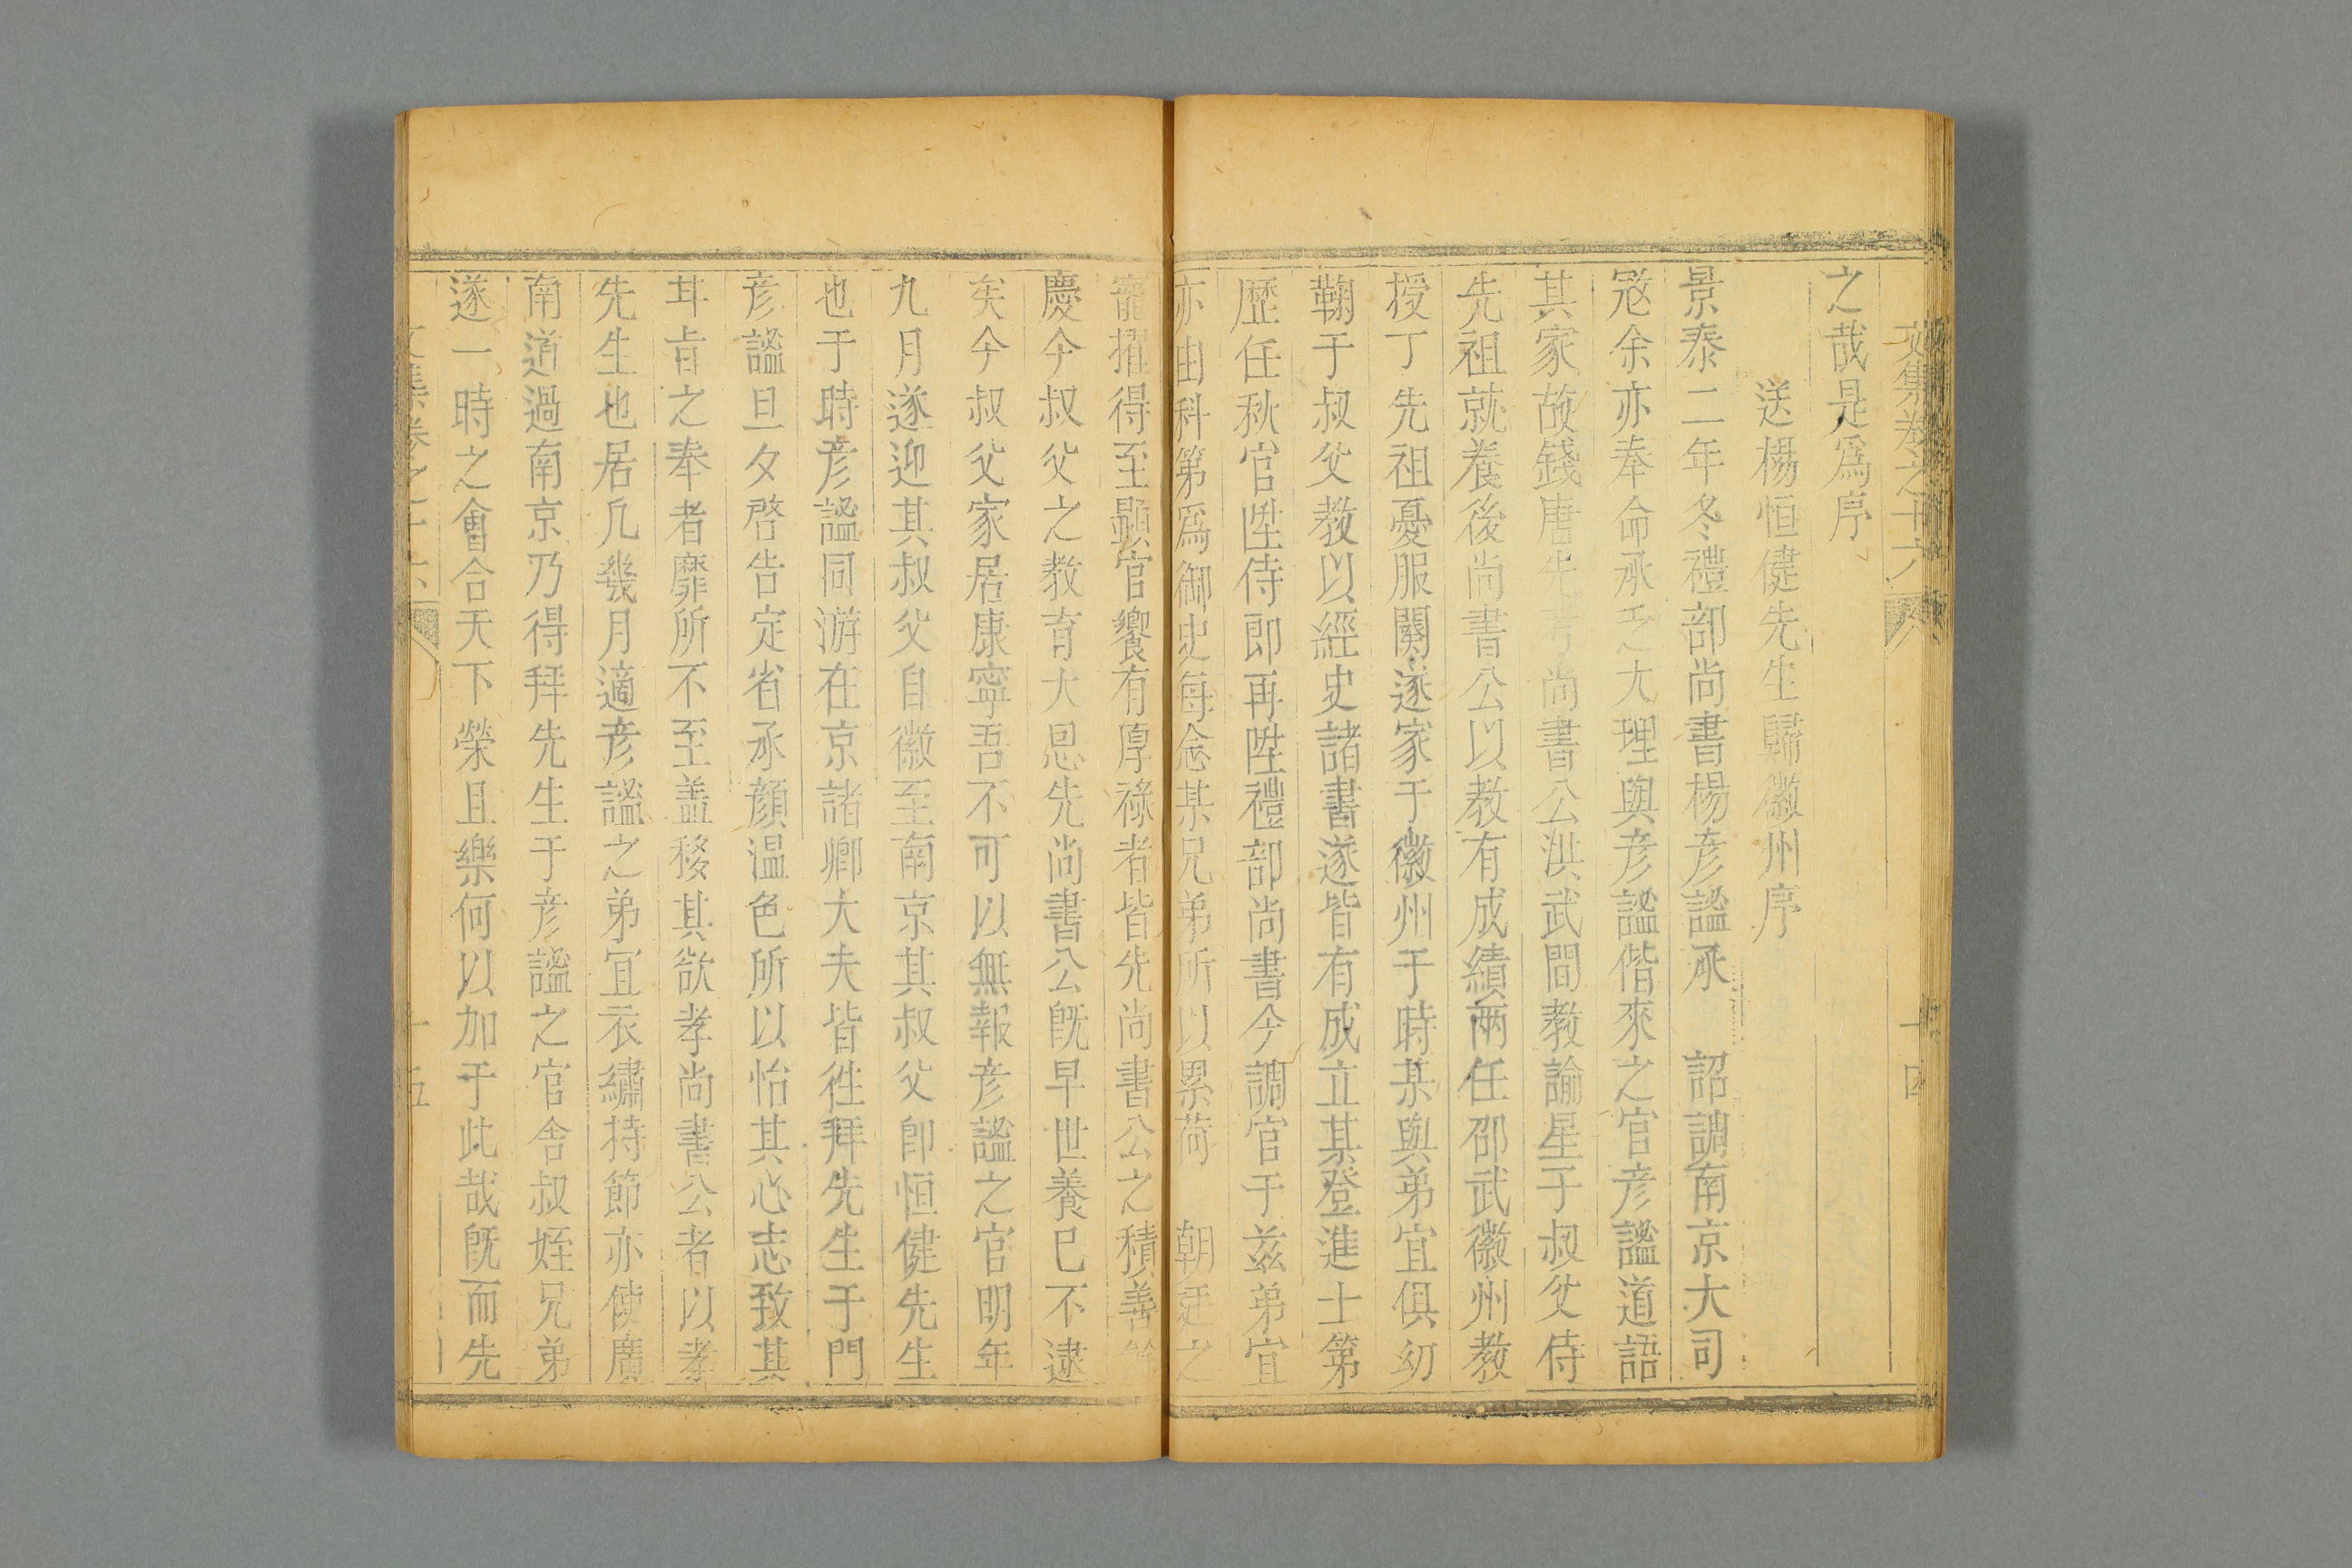 文集卷之十六
十四
之哉是爲序
送楊恒健先生歸徽州序
景泰二年冬禮部尚書楊彥謐承 詔調南京大司
宼余亦奉命承乏大理與彥謐偕來之官彥謐道語
其家故錢唐先考尚書公洪武間教諭星子叔父侍
先祖就養後尚書公以教有成績兩任邵武徽州教
授丁先祖憂服闋遂家于徽州于時某與弟宜俱幼
鞠于叔父教以經史諸書遂皆有成立某登進士第
歷任秋官陞侍郎再陞禮部尚書今調官于兹弟宜
亦由科第爲御史每念某兄弟所以累荷 朝廷之
寵擢得至顯官饗有厚祿者皆先尚書公之積善餘
慶今叔父之教育大恩先尚書公旣早世養已不逮
矣今叔父家居康寧吾不可以無報彥謐之官明年
九月遂迎其叔父自徽至南京其叔父卽恒健先生
也于時彥謐同游在京諸卿大夫皆徃拜先生于門
彥謐旦夕啓告定省承顏温色所以怡其心志致其
甘旨之奉者靡所不至盖移其欲孝尚書公者以孝
先生也居凡幾月適彥謐之弟宜衣繡持節亦使廣
南道過南京乃得拜先生于彥謐之官舍叔姪兄弟
遂一時之會合天下榮且樂何以加于此哉旣而先
文集卷之十六
十五